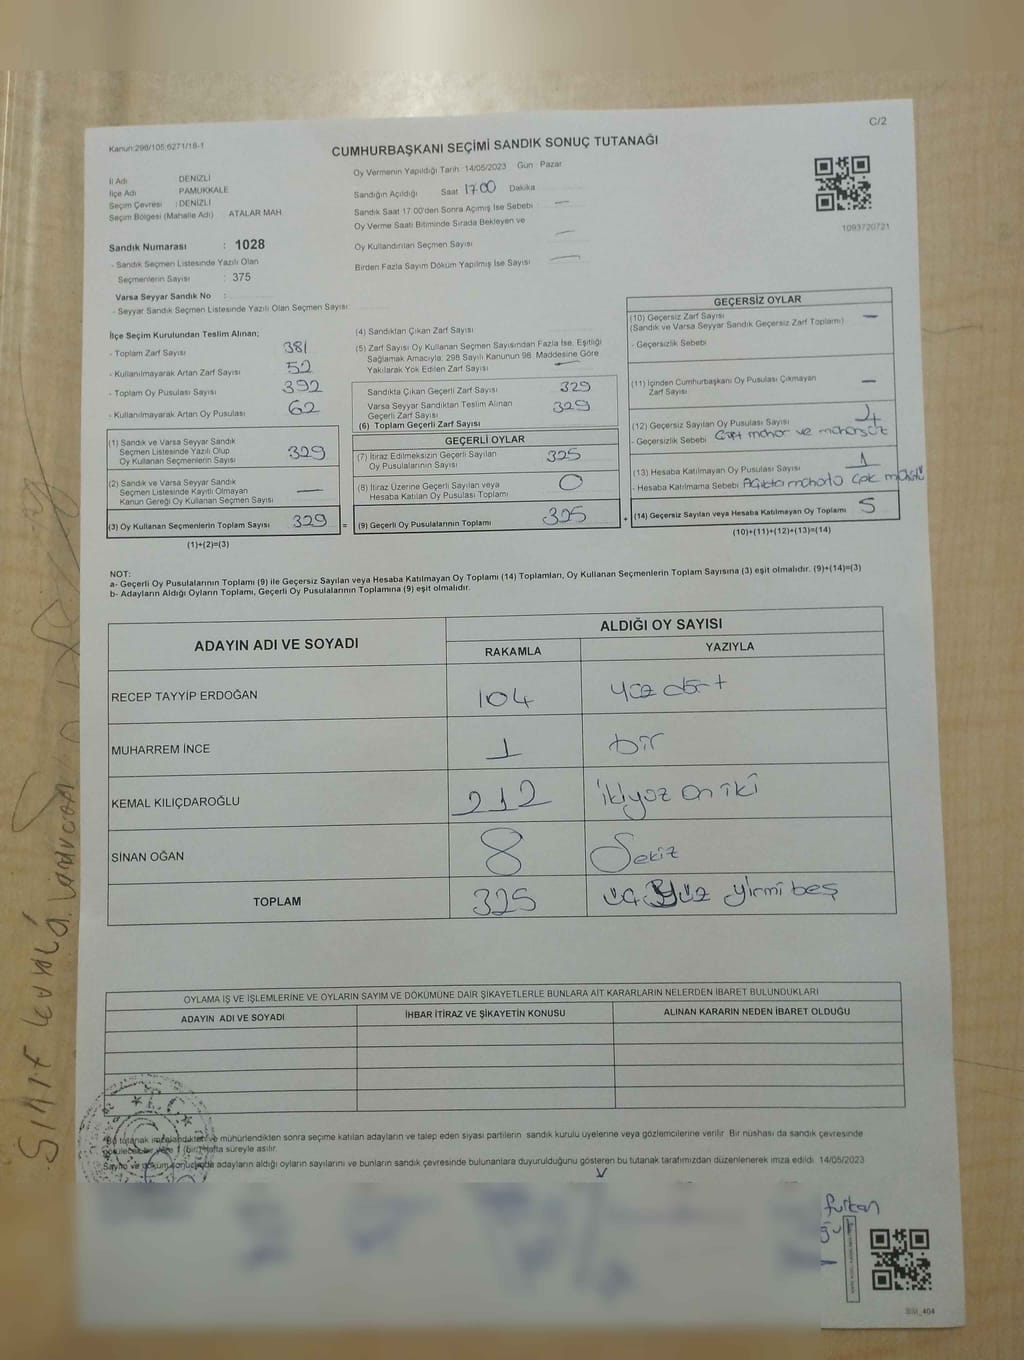 C/2
Kanun 298/105;6271/18-1
CUMHURBAŞKANI SEÇİMİ SANDIK SONUÇ TUTANAĞI
İl Adı DENİZLİ
İlçe Adı PAMUKKALE
Seçim Çevresi : DENİZLİ
Seçim Bölgesi (Mahalle Adı) ATALAR MAH.
Oy Vermenin Yapıldığı Tarih 14/05/2023 Gün Pazar
Sandığın Açıldığı Saat 17:00 Dakika
Sandık Saat 17.00'den Sonra Açımış İse Sebebi —
Oy Verme Saati Bitiminde Sırada Bekleyen ve
Oy Kullandırılan Seçmen Sayısı —
Birden Fazla Sayım Döküm Yapılmış İse Sayısı —
1093720721
Sandık Numarası : 1028
- Sandık Seçmen Listesinde Yazılı Olan
Seçmenlerin Sayısı : 375
Varsa Seyyar Sandık No :
- Seyyar Sandık Seçmen Listesinde Yazılı Olan Seçmen Sayısı
İlçe Seçim Kurulundan Teslim Alınan;
- Toplam Zarf Sayısı 381
- Kullanılmayarak Artan Zarf Sayısı 52
- Toplam Oy Pusulası Sayısı 392
- Kullanılmayarak Artan Oy Pusulası 62
(1) Sandık ve Varsa Seyyar Sandık
Seçmen Listesinde Yazılı Olup
Oy Kullanan Seçmenlerin Sayısı 329
(2) Sandık ve Varsa Seyyar Sandık
Seçmen Listesinde Kayıtlı Olmayan
Kanun Gereği Oy Kullanan Seçmen Sayısı —
(3) Oy Kullanan Seçmenlerin Toplam Sayısı 329 =
(1)+(2)=(3)
(4) Sandıktan Çıkan Zarf Sayısı
(5) Zarf Sayısı Oy Kullanan Seçmen Sayısından Fazla İse, Eşitliği
Sağlamak Amacıyla; 298 Sayılı Kanunun 98. Maddesine Göre
Yakılarak Yok Edilen Zarf Sayısı —
Sandıkta Çıkan Geçerli Zarf Sayısı 329
Varsa Seyyar Sandıktan Teslim Alınan
Geçerli Zarf Sayısı 329
(6) Toplam Geçerli Zarf Sayısı
GEÇERLİ OYLAR
(7) İtiraz Edilmeksizin Geçerli Sayılan
Oy Pusulalarının Sayısı 325
(8) İtiraz Üzerine Geçerli Sayılan veya
Hesaba Katılan Oy Pusulası Toplamı 0
(9) Geçerli Oy Pusulalarının Toplamı 325 +
GEÇERSİZ OYLAR
(10) Geçersiz Zarf Sayısı —
(Sandık ve Varsa Seyyar Sandık Geçersiz Zarf Toplamı)
- Geçersizlik Sebebi
(11) İçinden Cumhurbaşkanı Oy Pusulası Çıkmayan
Zarf Sayısı —
(12) Geçersiz Sayılan Oy Pusulası Sayısı 4
- Geçersizlik Sebebi Çift mühür ve mühürsüz
(13) Hesaba Katılmayan Oy Pusulası Sayısı 1
- Hesaba Katılmama Sebebi
(14) Geçersiz Sayılan veya Hesaba Katılmayan Oy Toplamı 5
(10)+(11)+(12)+(13)=(14)
NOT:
a- Geçerli Oy Pusulalarının Toplamı (9) ile Geçersiz Sayılan veya Hesaba Katılmayan Oy Toplamı (14) Toplamları, Oy Kullanan Seçmenlerin Toplam Sayısına (3) eşit olmalıdır. (9)+(14)=(3)
b- Adayların Aldığı Oyların Toplamı, Geçerli Oy Pusulalarının Toplamına (9) eşit olmalıdır.
ADAYIN ADI VE SOYADI ALDIĞI OY SAYISI
RAKAMLA YAZIYLA
RECEP TAYYİP ERDOĞAN 104 yüz dört
MUHARREM İNCE 1 bir
KEMAL KILIÇDAROĞLU 212 ikiyüz on iki
SİNAN OĞAN 8 Sekiz
TOPLAM 325 üç yüz yirmi beş
OYLAMA İŞ VE İŞLEMLERİNE VE OYLARIN SAYIM VE DÖKÜMÜNE DAİR ŞİKAYETLERLE BUNLARA AİT KARARLARIN NELERDEN İBARET BULUNDUKLARI
ADAYIN ADI VE SOYADI İHBAR İTİRAZ VE ŞİKAYETİN KONUSU ALINAN KARARIN NEDEN İBARET OLDUĞU
T.C.
Bu tutanak imzalandıktan ve mühürlendikten sonra seçime katılan adayların ve talep eden siyasi partilerin sandık kurulu üyelerine veya gözlemcilerine verilir. Bir nüshası da sandık çevresinde
1 (bir) hafta süreyle asılır.
Sayım ve döküm sonucunda adayların aldığı oyların sayılarını ve bunların sandık çevresinde bulunanlara duyurulduğunu gösteren bu tutanak tarafımızdan düzenlenerek imza edildi. 14/05/2023
furkan
BİM_404